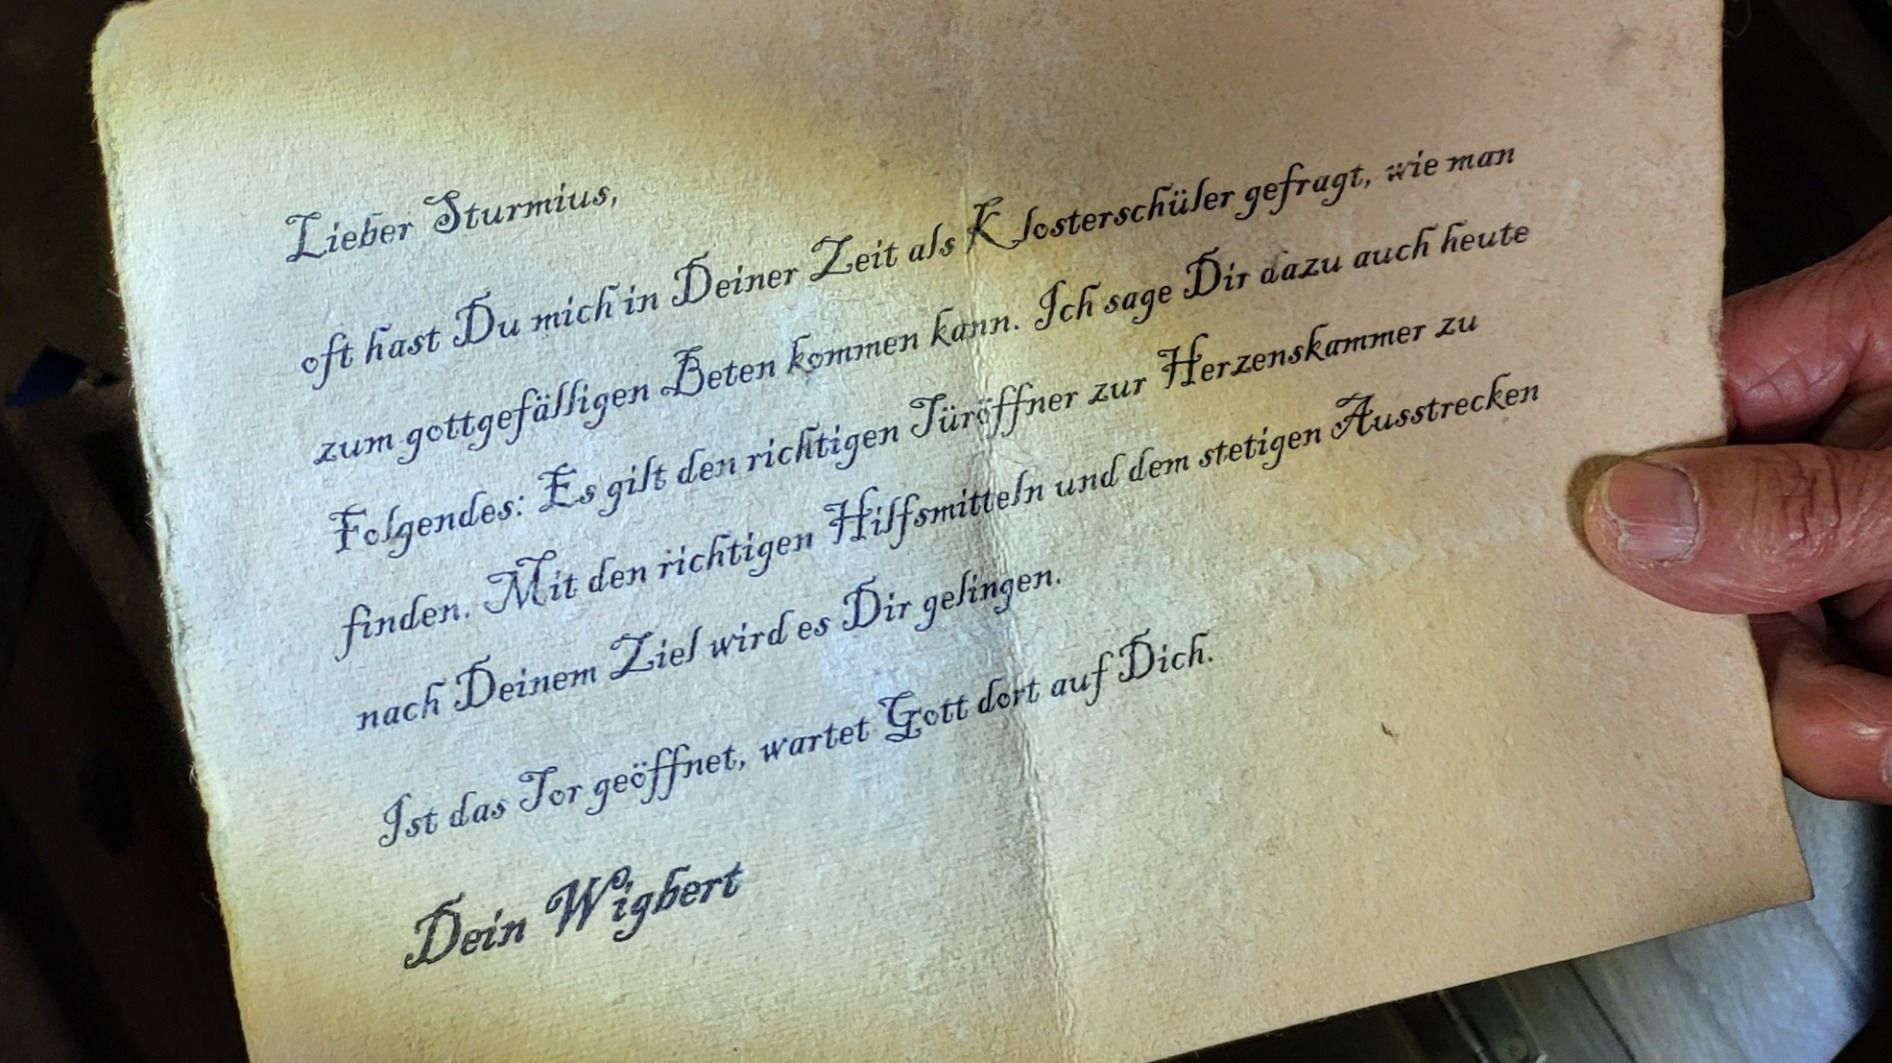 Lieber Sturmius,
oft hast Du mich in Deiner Zeit als Klosterschüler gefragt, wie man
zum gottgefälligen Beten kommen kann. Ich sage Dir dazu auch heute
Folgendes: Es gilt den richtigen Türöffner zur Herzenskammer zu
finden. Mit den richtigen Hilfsmitteln und dem stetigen Ausstrecken
nach Deinem Ziel wird es Dir gelingen.
Ist das Tor geöffnet, wartet Gott dort auf Dich.
Dein Wigbert